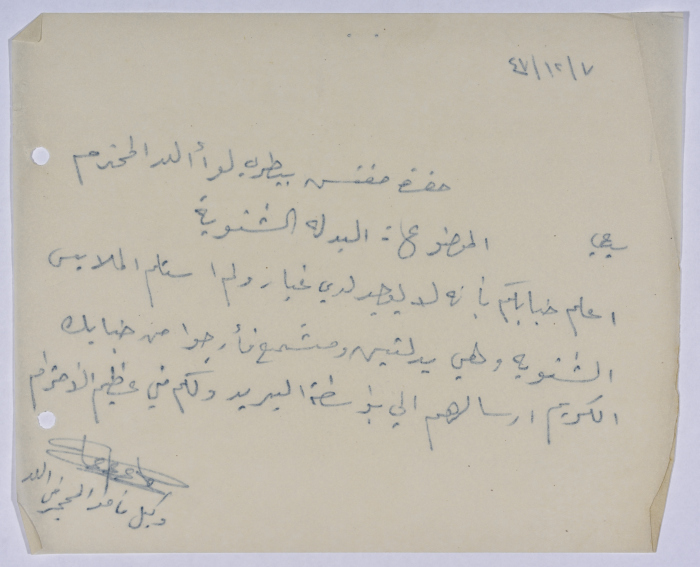 ٤٧/١٢/٧
حضرة مفتش بيطره لواء اللد المحترم
سيدي الموضوع: البدله الشتوية
اعلم جنابكم بأنه لا يوجد لدي غيار ولم استلم الملابس
الشتويه وهي بدلتين ومشمع فأرجوا من جنابك
الكريم ارسالهم الي بواسطة البريد ولكم مني عظيم الاحترام
وكيل مأمور المحجر في اللد